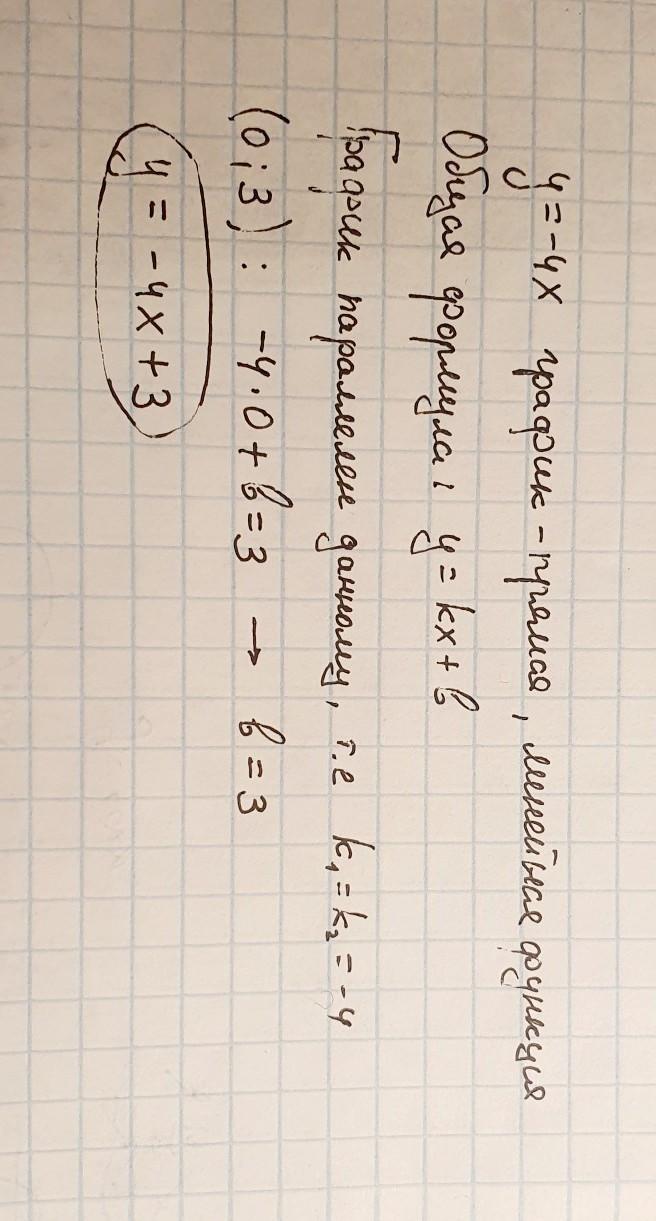 y = -4x график - прямая, линейная функция
Общая формула: y = kx + b
График параллелен данному, т.е k₁ = k₂ = -4
(0; 3) : -4·0 + b = 3 → b = 3
y = -4x + 3